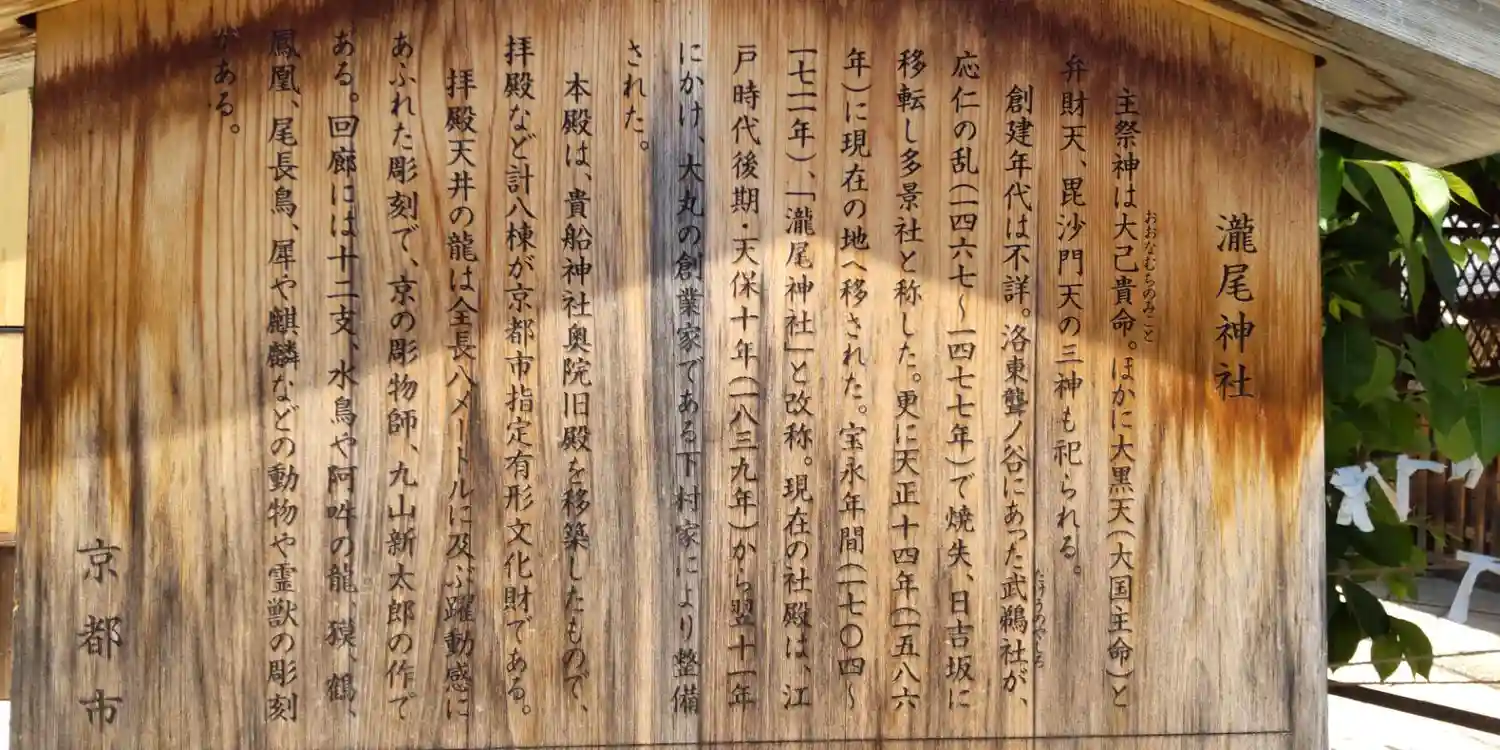 瀧尾神社
主祭神は大己貴命。ほかに大黒天(大国主命)と
おおなむちのみこと
弁財天、毘沙門天の三神も祀られる。
創建年代は不詳。洛東聾ノ谷にあった武鵜社が、
たけうのやしろ
応仁の乱(一四六七〜一四七七年)で焼失、日吉坂に
移転し多景社と称した。更に天正十四年(一五八六
年)に現在の地へ移された。宝永年間(一七〇四〜
一七一一年)、「瀧尾神社」と改称。現在の社殿は、江
戸時代後期・天保十年(一八三九年)から翌十一年
にかけ、大丸の創業家である下村家により整備
された。
本殿は、貴船神社奥院旧殿を移築したもので、
拝殿など計八棟が京都市指定有形文化財である。
拝殿天井の龍は全長八メートルに及ぶ躍動感に
あふれた彫刻で、京の彫物師、九山新太郎の作で
ある。回廊には十二支、水鳥や阿吽の龍、獏、鶴、
鳳凰、尾長鳥、犀や麒麟などの動物や霊獣の彫刻
がある。
京都市